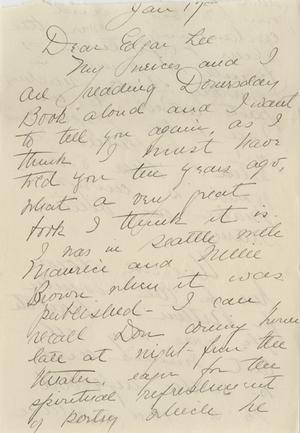 Jan 17
Dear Edgar Lee
My neices and I
are reading Domesday
Book aloud and I want
to tell you again, as I
think I must have
told you ten years ago,
what a very great
book I think it is.
I was in Seattle with
Maurice and Nellie
Brown when it was
published - I can
recall Don coming home
late at night from the
theater, eager for the
spiritual refreshment
of poetry which he